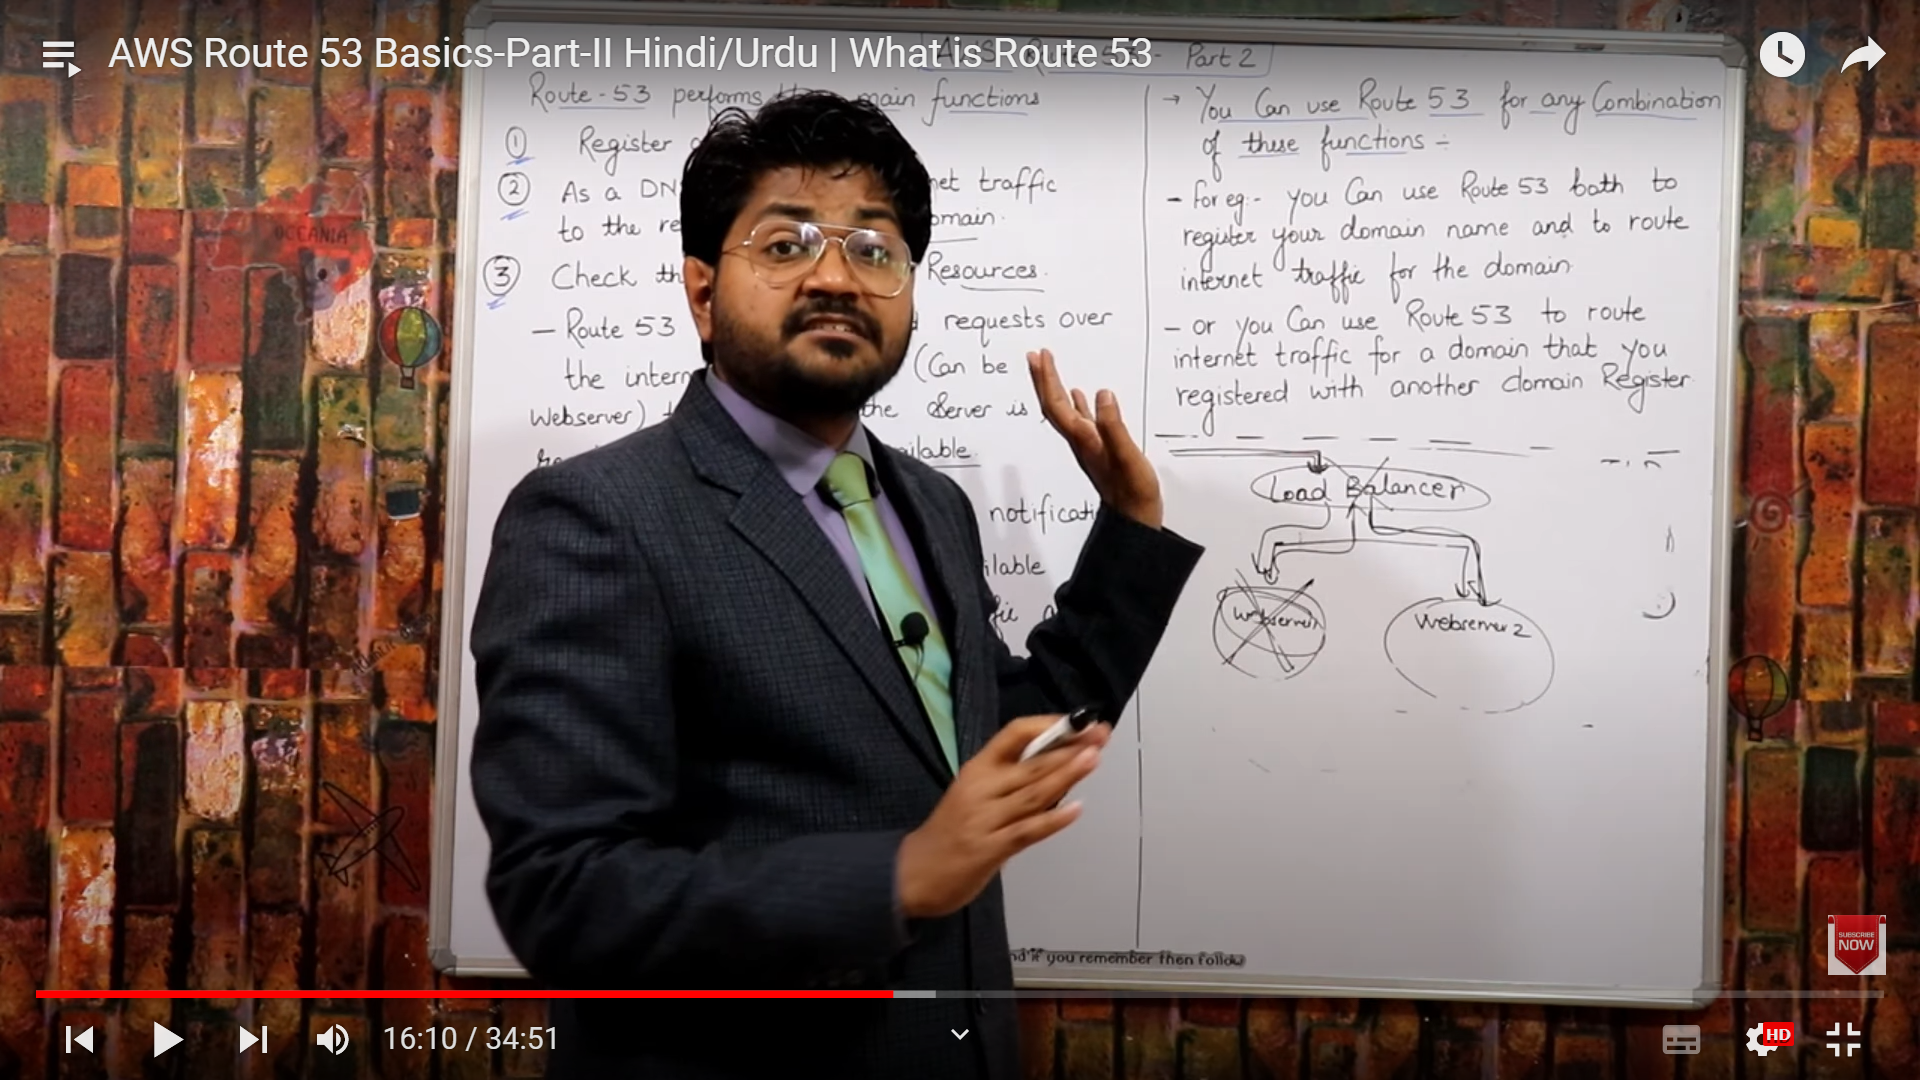 AWS Route 53 Basics-Part-II Hindi/Urdu | What is Route 53
Part 2
Route-53 performs main functions
① Register
② As a DN net traffic
to the re omain.
③ Check th Resources.
— Route 53 requests over
the intern (Can be
Webserver) the Server is
ailable.
notificati
ilable
→ You Can use Route 53 for any Combination
of these functions :-
- for eg:- you Can use Route 53 both to
register your domain name and to route
internet traffic for the domain.
- or you Can use Route 53 to route
internet traffic for a domain that you
registered with another domain Register.
Load Balancer
Webserver 2
OCEANIA
nd if you remember then follow
SUBSCRIBE
NOW
16:10 / 34:51
HD